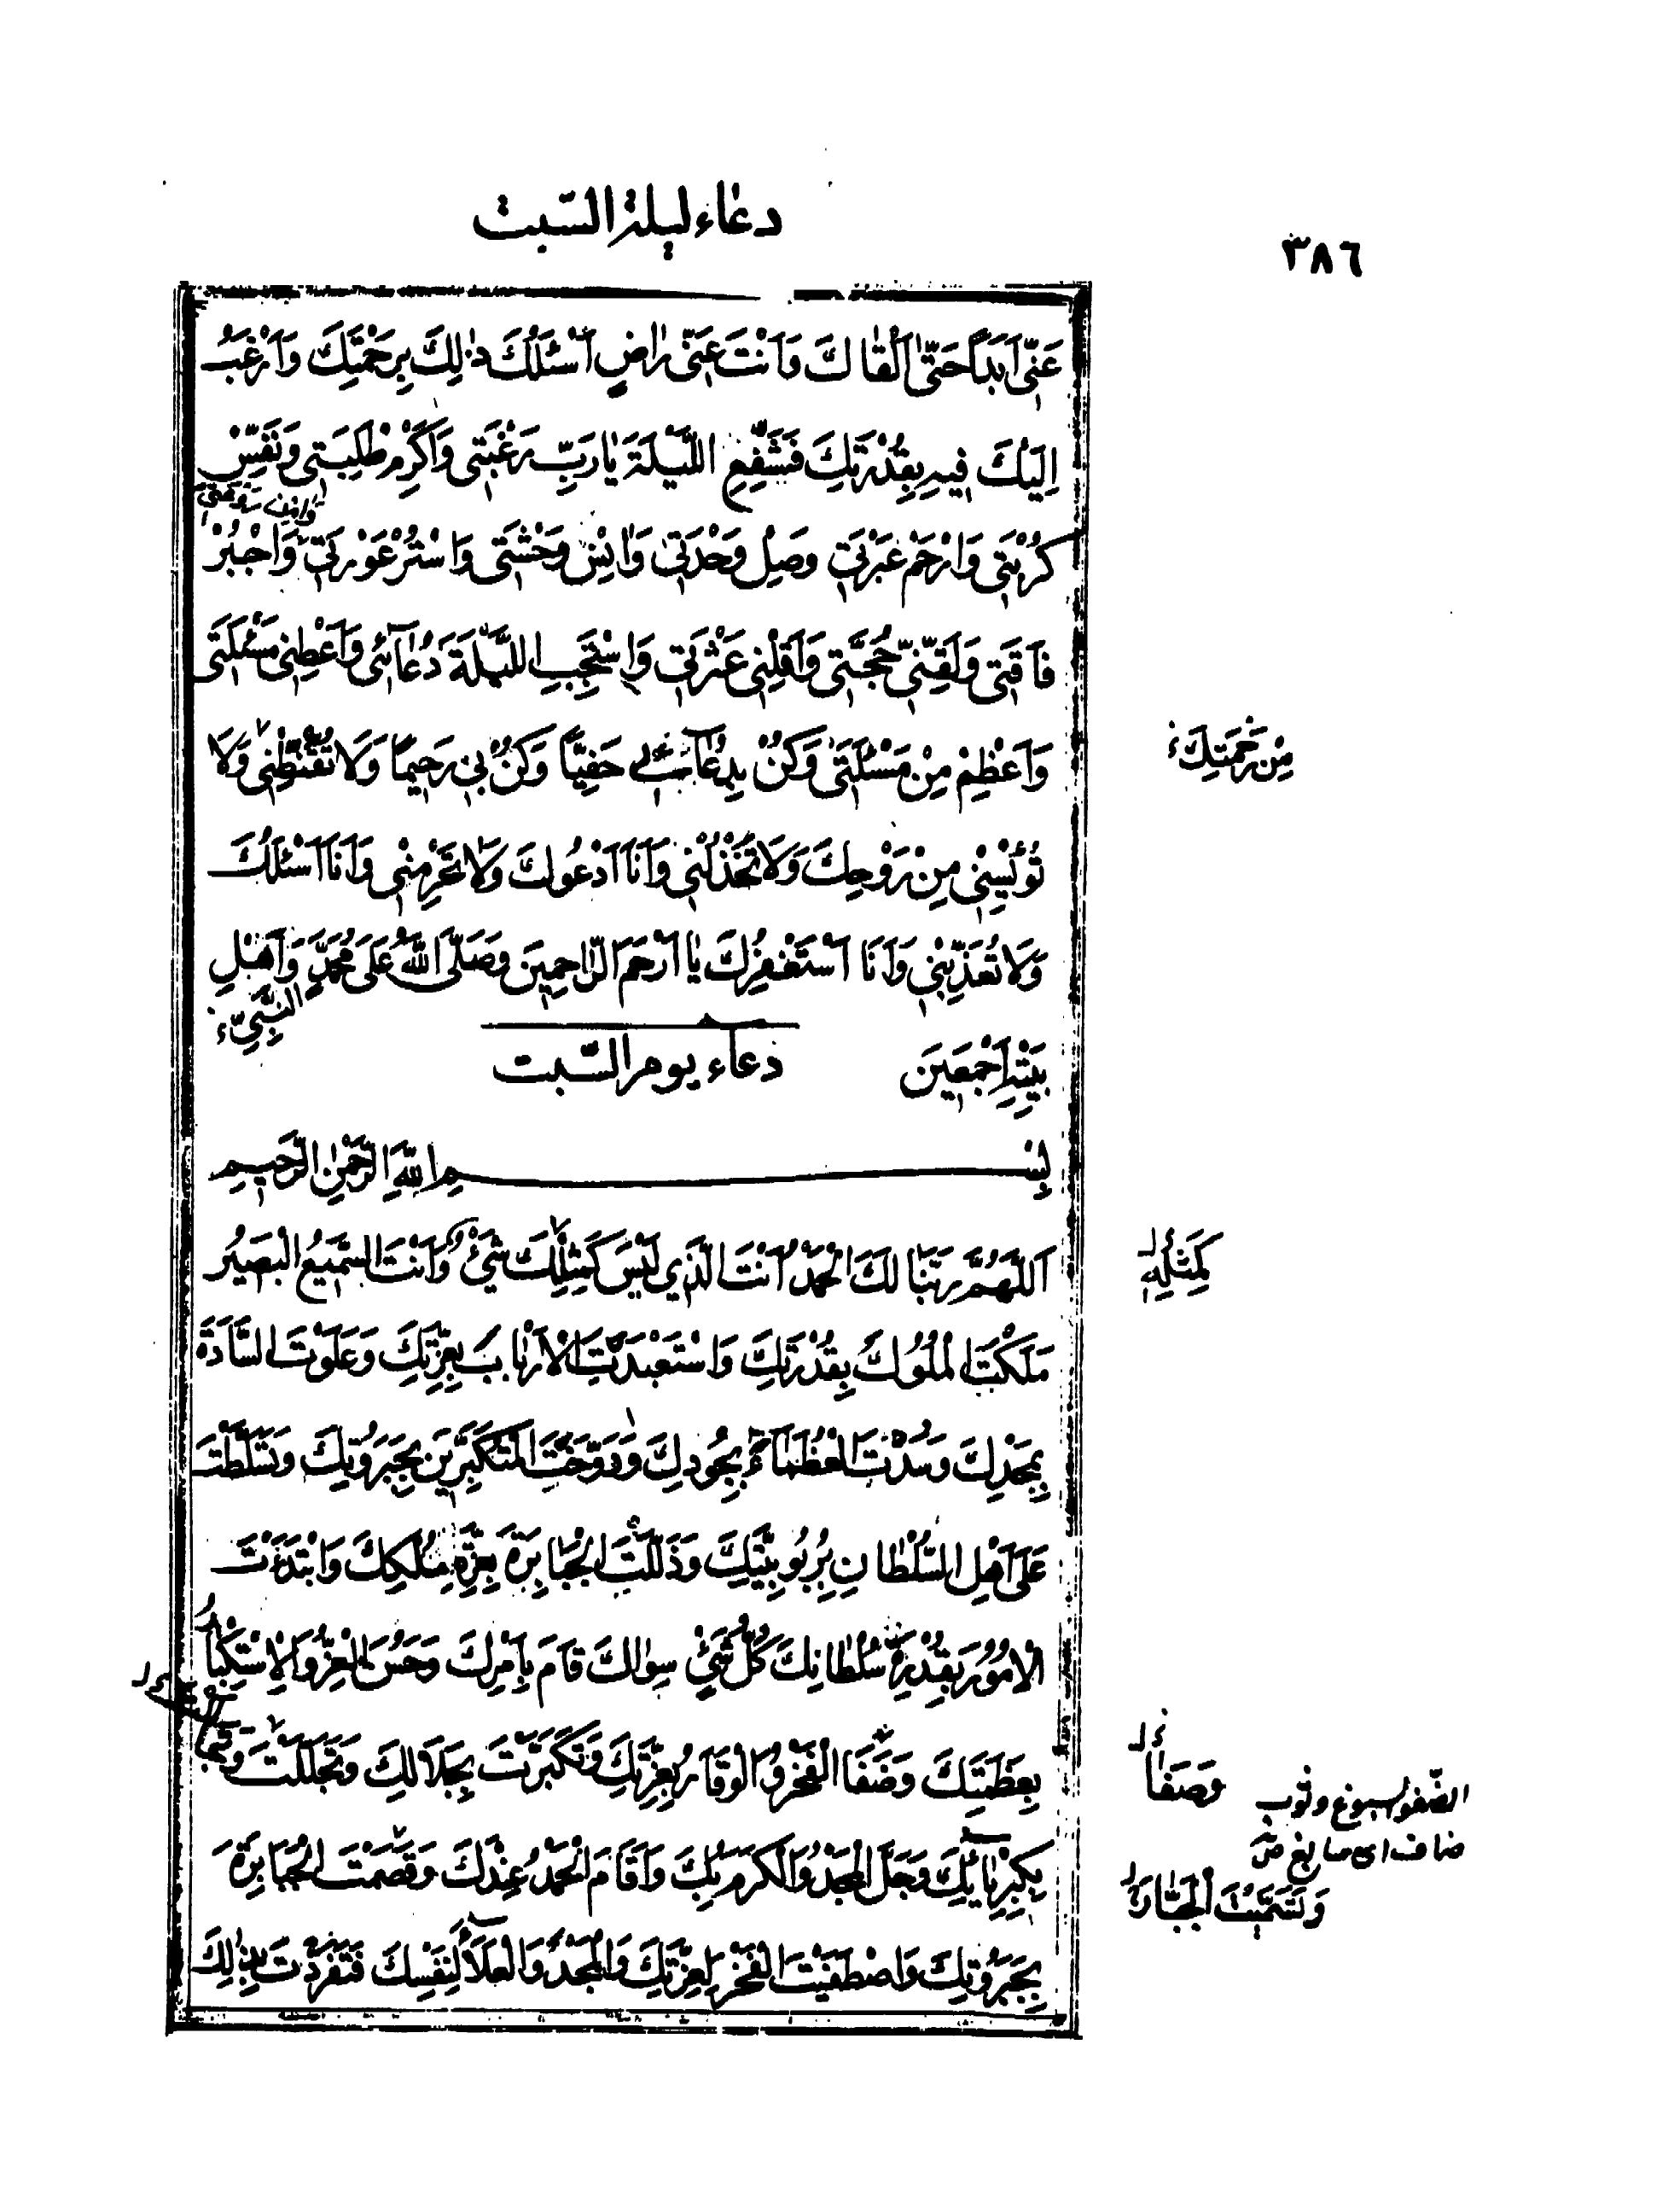 دعاء ليلة السّبت
٣٨٦
عَنّى اَبَدًا حَتّىٰ اَلْقٰاكَ وَاَنْتَ عَنّى رٰاضٍ اَسْئَلُكَ ذٰلِكَ بِرَحْمَتِكَ وَاَرْغَبُ
اِلَيْكَ فيهِ بِقُدْرَتِكَ فَشَفِّعِ اللَّيْلَةَ يٰا رَبِّ رَغْبَتى وَاَكْرِمْ طَلِبَتى وَنَفِّسْ
كُرْبَتى وَارْحَمْ عَبْرَتى وَصِلْ وَحْدَتى وَاٰنِسْ وَحْشَتى وَاسْتُرْ عَوْرَتى وَاجْبُرْ
فٰاقَتى وَلَقِّنّى حُجَّتى وَاَقِلْنى عَثْرَتى وَاسْتَجِبِ اللَّيْلَةَ دُعٰآئى وَاَعْطِنى مَسْئَلَتى
وَاَعْظِمْ مِنْ مَسْئَلَتى وَكُنْ بِدُعٰآئى حَفِيًّا وَكُنْ بى رَحيمًا وَلَا تُقَنِّطْنى وَلَا
مِنْ رَحْمَتِكَ
تُؤْيِسْنى مِنْ رَوْحِكَ وَلَا تَخْذُلْنى وَاَنَا اَدْعُوكَ وَلَا تَحْرِمْنى وَاَنَا اَسْئَلُكَ
وَلَا تُعَذِّبْنى وَاَنَا اَسْتَغْفِرُكَ يٰا اَرْحَمَ الرّٰاحِمينَ وَصَلَّى اللّٰهُ عَلىٰ مُحَمَّدٍ وَاَهْلِ
النَّبِىِّ
بَيْتِهِ اَجْمَعينَ
دعاء يوم السّبت
بِسْمِ اللّٰهِ الرَّحْمٰنِ الرَّحيمِ
اَللّٰهُمَّ رَبَّنٰا لَكَ الْحَمْدُ اَنْتَ الَّذي لَيْسَ كَمِثْلِكَ شَىْءٌ وَاَنْتَ السَّميعُ الْبَصيرُ
كَمِثْلِهِ
مَلَكْتَ الْمُلُوكَ بِقُدْرَتِكَ وَاسْتَعْبَدْتَ الْاَرْبٰابَ بِعِزَّتِكَ وَعَلَوْتَ السَّادَةَ
بِمَجْدِكَ وَسُدْتَ الْعُظَمٰاءَ بِجُودِكَ وَدَوَّخْتَ الْمُتَكَبِّرينَ بِجَبَرُوتِكَ وَتَسَلَّطْتَ
عَلىٰ اَهْلِ السُّلْطٰانِ بِرُبُوبِيَّتِكَ وَذَلَّلْتَ الْجَبٰابِرَةَ بِعِزَّةِ مُلْكِكَ وَابْتَدَئْتَ
الْاُمُورَ بِقُدْرَةِ سُلْطٰانِكَ كُلُّ شَىْءٍ سِوٰاكَ قٰامَ بِاَمْرِكَ وَحَسُنَ الْعِزُّ وَالْاِسْتِكْبٰارُ
بِعَظَمَتِكَ وَضَفَا الْفَخْرُ وَالْوَقٰارُ بِعِزَّتِكَ وَتَكَبَّرْتَ بِجَلَالِكَ وَتَجَلَّلْتَ
وَصَفٰا
الضّفو السبوغ وثوب
ضاف اى سابغ ص
بِكِبْرِيٰآئِكَ وَجَلَّ الْمَجْدُ وَالْكَرَمُ بِكَ وَاَقٰامَ الْحَمْدُ عِنْدَكَ وَقَصَمْتَ الْجَبٰابِرَةَ
بِجَبَرُوتِكَ وَاصْطَفَيْتَ الْفَخْرَ لِعِزَّتِكَ وَالْمَجْدَ وَالْعَلَآءَ لِنَفْسِكَ فَتَفَرَّدْتَ بِذٰلِكَ